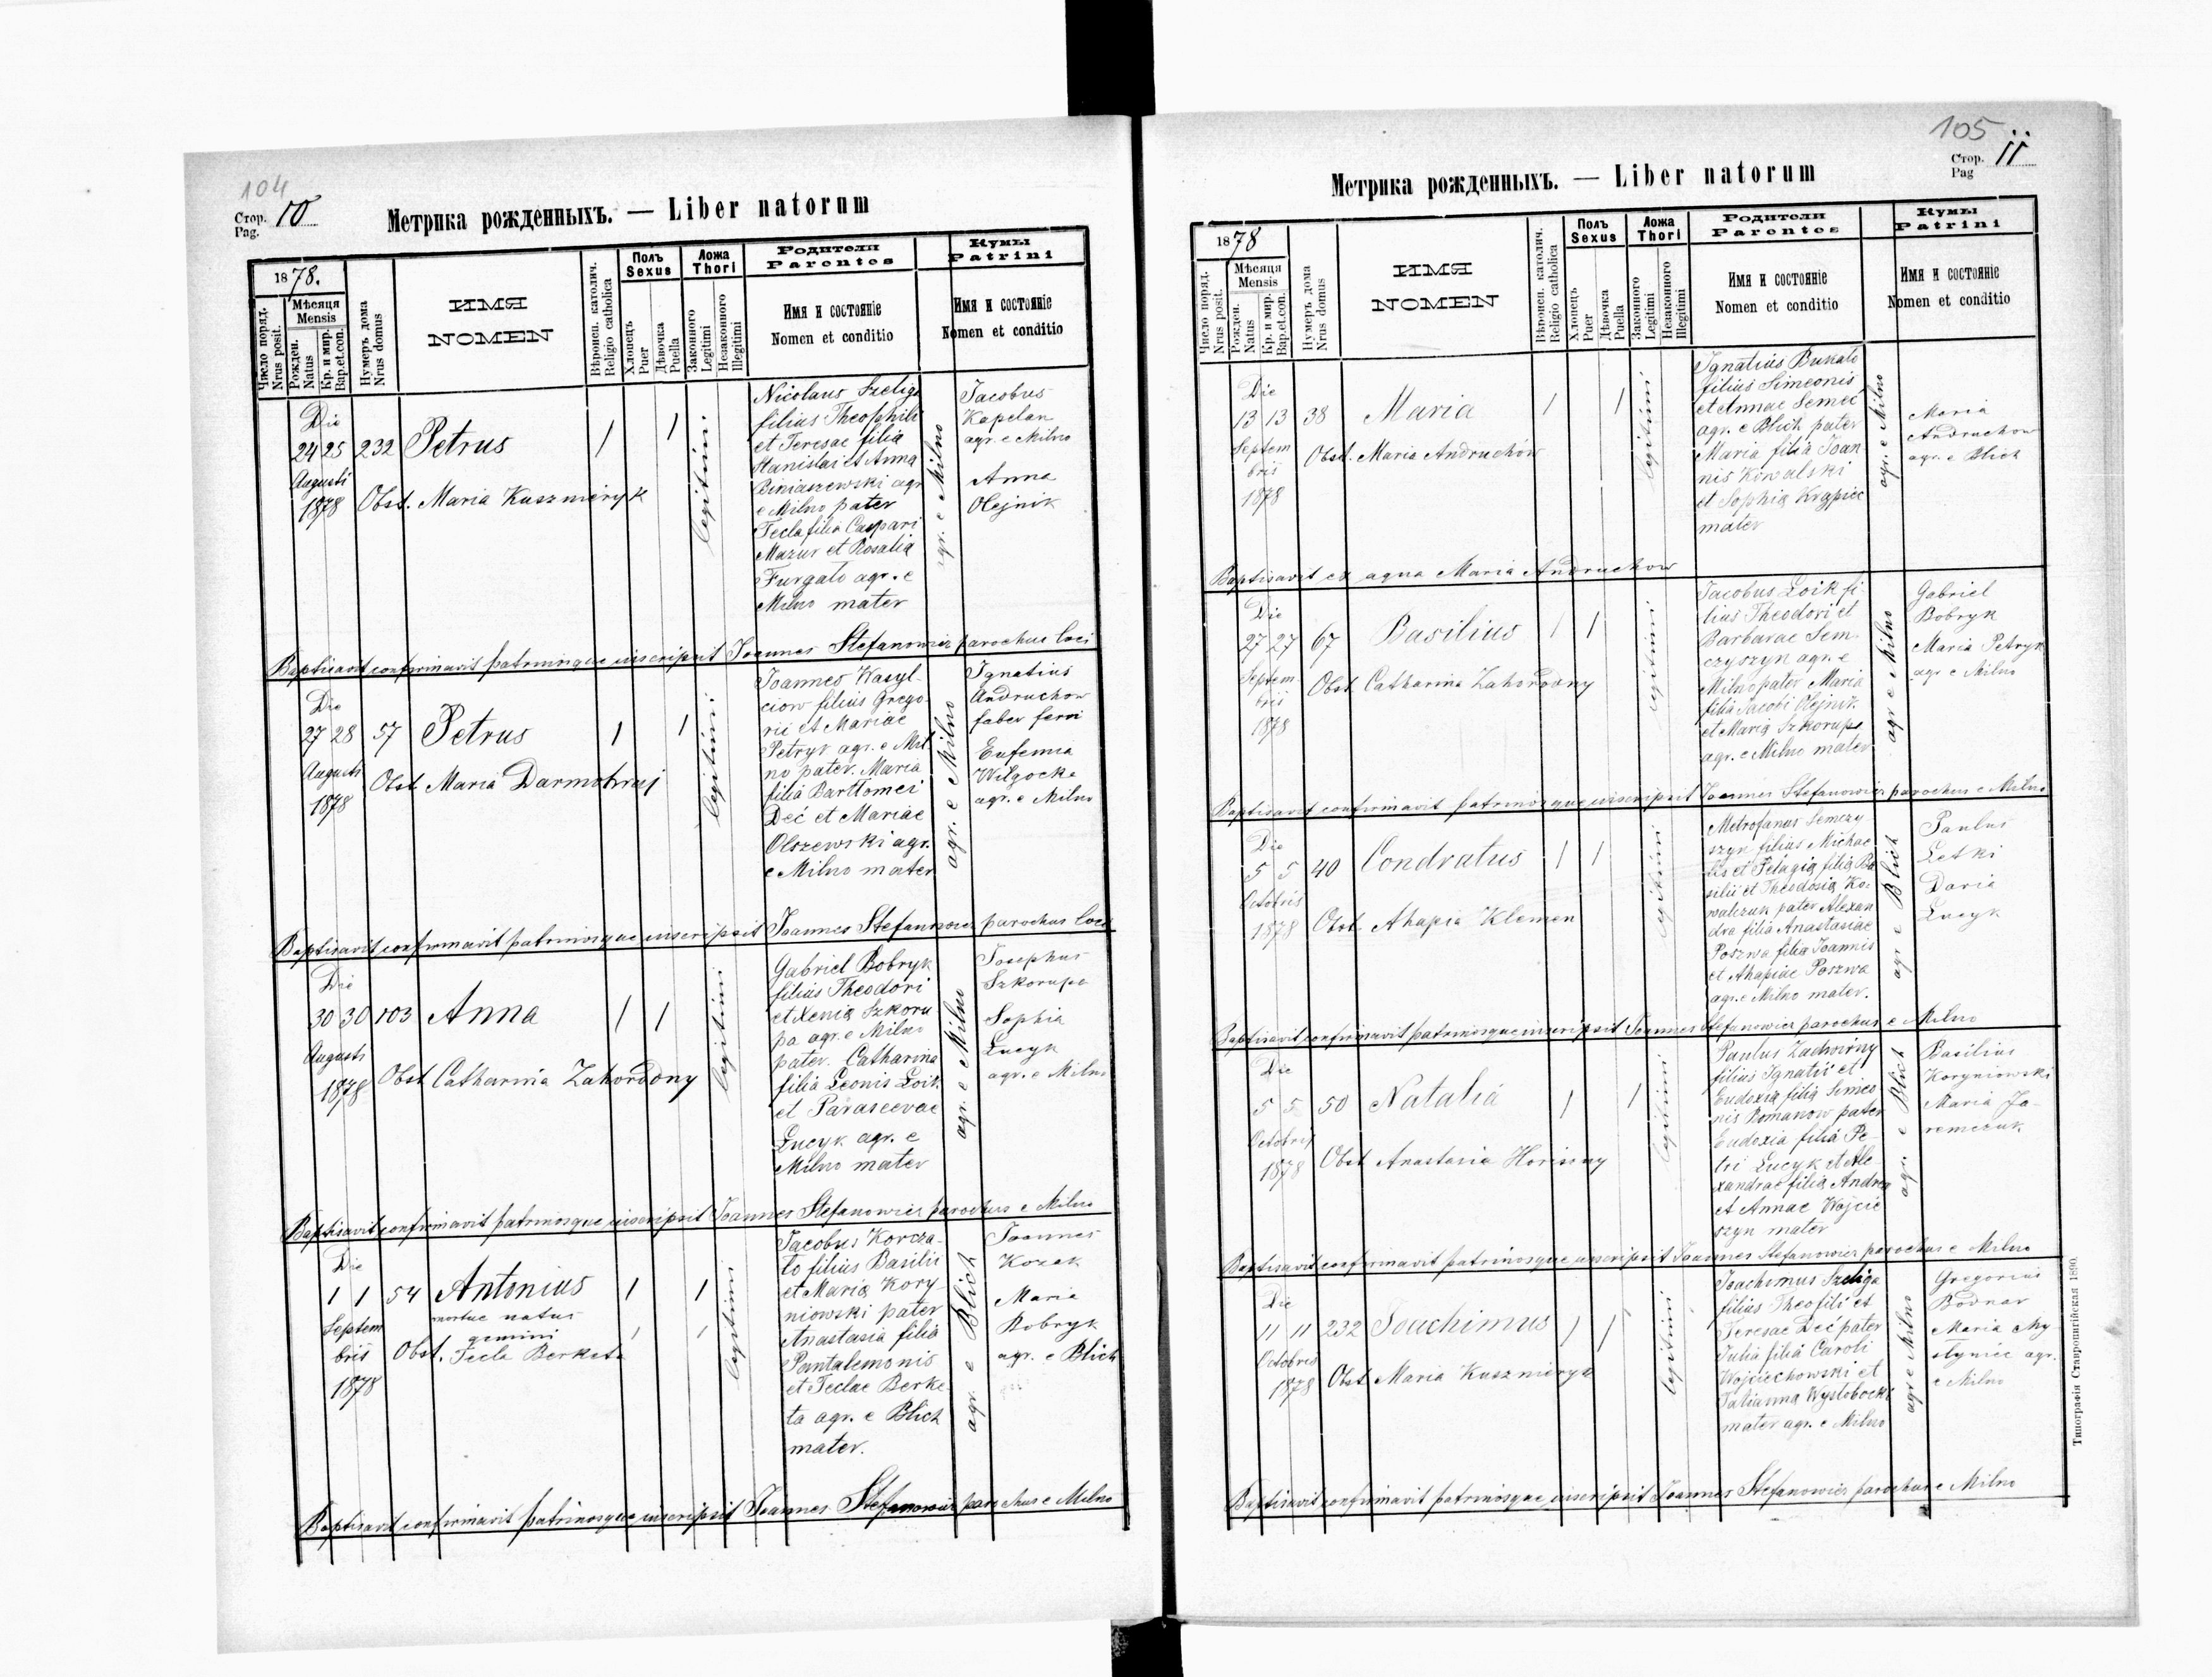 104
Стор. 10
Pag.
Метрика рожденныхъ. — Liber natorum
1878.
Число поряд.
Nrus posit.
Мѣсяця
Mensis
Рожден.
Natus
Кр. и мир.
Bap.et.con.
Нумеръ дома
Nrus domus
ИМЯ
NOMEN
Вѣроисп. католич.
Religio catholica
Полъ
Sexus
Хлопецъ
Puer
Дѣвочка
Puella
Ложа
Thori
Законного
Legitimi
Незаконного
Illegitimi
Родители
Parentes
Имя и состоянiе
Nomen et conditio
Кумы
Patrini
Имя и состоянiе
Nomen et conditio
Die
24 25 232 Petrus 1 1
Augusti
1878
Obst. Maria Kuszmeryk
legitimi
Nicolaus Szeliga
filius Theophili
et Teresae filia
Stanislai et Anna
Biniaszewski agr
e Milno pater
Tecla filia Caspari
Mazur et Rosalia
Furgato agr. e
Milno mater
agr. e Milno
Jacobus
Kapelan
agr. e Milno
Anna
Olejnik
Baptisavit confirmavit patrinosque inscripsit Joannes Stefanowicz parochus loci
Die
27 28 57 Petrus 1 1
Augusti
1878
Obst Maria Darmohraj
legitimi
Joannes Wasyl-
ciow filius Grego-
rii et Mariae
Petryk agr. e Mil
no pater. Maria
filia Barttomei
Deć et Mariae
Olszewski agr.
e Milno mater
agr. e Milno
Ignatius
Andruchow
faber ferri
Eufemia
Wilgocka
agr. e Milno
Baptisavit confirmavit patrinosque inscripsit Joannes Stefanowicz parochus loci
Die
30 30 103 Anna 1 1
Augusti
1878
Obst Catharina Zahordony
legitimi
Gabriel Bobryk
filius Theodori
et Xenia Szkoru
pa agr. e Milno
pater. Catharina
filia Leonis Loik
et Parascevae
Lucyk agr. e
Milno mater
agr. e Milno
Josephus
Szkorupa
Sophia
Lucyk
agr. e Milno
Baptisavit confirmavit patrinosque inscripsit Joannes Stefanowicz parochus e Milno
Die
1 1 54 Antonius 1 1
Septem
bris
1878
mortue natus
gemini
Obst. Tecla Berkata
legitimi
Jacobus Korcza-
to filius Basilii
et Maria Kory-
niowski pater
Anastasia filia
Pantalemonis
et Teclae Berke
ta agr. e Blich
mater.
agr. e Blich
Joannes
Kozak
Maria
Bobryk
agr. e Blich
Baptisavit confirmavit patrinosque inscripsit Joannes Stefanowicz parochus e Milno
105
Стор. 11
Pag
Метрика рожденныхъ. — Liber natorum
1878
Число поряд.
Nrus posit.
Мѣсяця
Mensis
Рожден.
Natus
Кр. и мир.
Bap.et.con.
Нумеръ дома
Nrus domus
ИМЯ
NOMEN
Вѣроисп. католич.
Religio catholica
Полъ
Sexus
Хлопецъ
Puer
Дѣвочка
Puella
Ложа
Thori
Законного
Legitimi
Незаконного
Illegitimi
Родители
Parentes
Имя и состоянiе
Nomen et conditio
Кумы
Patrini
Имя и состоянiе
Nomen et conditio
Die
13 13 38 Maria 1 1
Septem
bris
1878
Obst. Maria Andruchów
legitimi
Ignatius Bukato
filius Simeonis
et Annae Semeć
agr. e Blich pater
Maria filia Joan-
nis Kowalski
et Sophia Krapiec
mater
agr. e Milno
Maria
Andruchow
agr. e Blich
Baptisavit ex aqua Maria Andruchow
Die
27 27 67 Basilius 1 1
Septem
bris
1878
Obst Catharina Zahordony
legitimi
Jacobus Loik fi-
lius Theodori et
Barbarae Sem-
czyszyn agr. e
Milno pater Maria
filia Jacobi Olejnik
et Maria Szkorupa
agr. e Milno mater
agr e Milno
Gabriel
Bobryk
Maria Petryk
agr e Milno
Baptisavit confirmavit patrinosque inscripsit Joannes Stefanowicz parochus e Milno
Die
5 5 40 Condratus 1 1
Octobris
1878
Obst Ahapia Klemen
legitimi
Metrofanus Semczy
szyn filius Michae
lis et Pelagia filia Ba
silii et Theodosia Ko-
walczuk pater Alexan
dra filia Anastasiae
Poszwa filia Joannis
et Ahapiae Poszwa
agr. e Milno mater.
agr e Blich
Paulus
Letki
Daria
Lucyk
Baptisavit confirmavit patrinosque inscripsit Joannes Stefanowicz parochus e Milno
Die
5 5 50 Natalia 1 1
Octobris
1878
Obst Anastasia Horisny
legitimi
Paulus Zadwirny
filius Ignatii et
Eudoxia filia Simeo
nis Romanow pater
Eudoxia filia Pe-
tri Lucyk et Ale-
xandrae filia Andrea
et Annae Wojcie
szyn mater
agr. e Blich
Basilius
Koryniowski
Maria Ja-
remczuk
Baptisavit confirmavit patrinosque inscripsit Joannes Stefanowicz parochus e Milno
Die
11 11 232 Joachimus 1 1
Octobris
1878
Obst Maria Kuszmeryk
legitimi
Joachimus Szeliga
filius Theofili et
Teresae Deć pater
Julia filia Caroli
Wojciechowski et
Tatianna Wystobocki
mater agr. e Milno
agr e Milno
Gregorius
Bodnar
Maria My
styniec agr.
e Milno
Baptisavit confirmavit patrinosque inscripsit Joannes Stefanowicz parochus e Milno
Типографiя Ставропигiйская 1890.